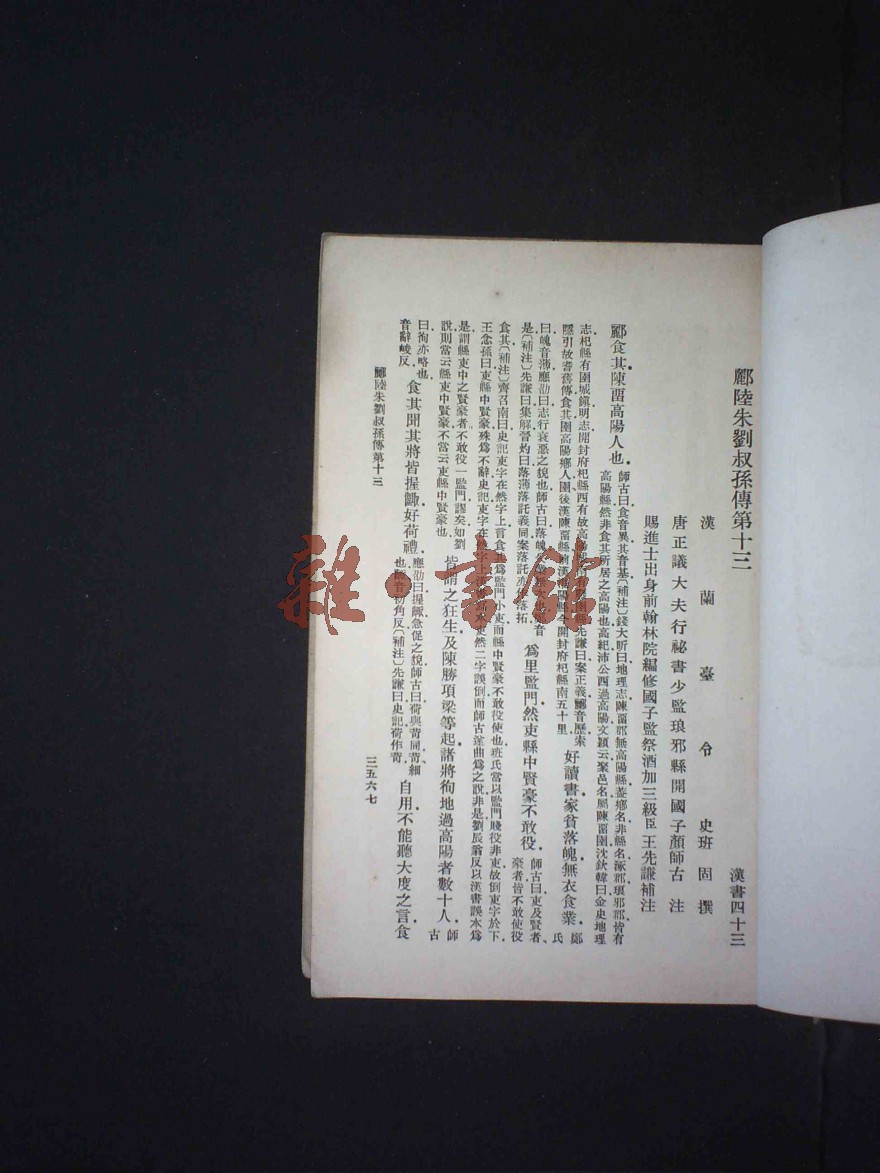 酈陸朱劉叔孫傳第十三
漢書四十三
漢蘭臺令史班固撰
唐正議大夫行祕書少監琅邪縣開國子顏師古注
賜進士出身前翰林院編修國子監祭酒加三級臣王先謙補注
酈食其陳留高陽人也
師古曰食音異其音基〔補注〕錢大昕曰地理志陳留郡無高陽縣蓋鄉名非縣名涿郡琅邪郡皆有
高陽縣然非食其所居之高陽也高紀沛公西過高陽文穎云聚邑名屬陳留圉沈欽韓曰金史地理
志杞縣有圉城鎮明志開封府杞縣西有故高陽城
先謙曰案正義酈音歷索
隱引故耆舊傳食其圉高陽鄉人圉後漢陳留縣
今開封府杞縣南五十里
好讀書家貧落魄無衣食業
鄭氏
曰魄音薄應劭曰志行衰惡之貌也師古曰落魄失業無次也
音
是〔補注〕先謙曰集解晉灼曰落薄落託義同案落託亦作落拓
爲里監門然吏縣中賢豪不敢役
師古曰吏及賢者
豪者皆不敢使役
食其〔補注〕齊召南曰史記吏字在然字上言食其爲監門小吏而縣中賢豪不敢役使也班氏當以監門賤役非吏故倒吏字於下
王念孫曰吏縣中賢豪殊爲不辭史記吏字在然字上漢書
吏然二字誤倒而師古曲爲之說非是劉辰翁反以漢書誤本爲
是謂縣吏中之賢豪者不敢役一監門謬矣如劉
說則當云縣吏中賢豪不當云吏縣中賢豪也
皆謂之狂生及陳勝項梁等起諸將徇地過高陽者數十人
師古
曰徇亦略也
音辭峻反
食其聞其將皆握齱好荷禮
應劭曰握齱急促之貌師古曰荷與苛同苛細
也齱音初角反〔補注〕先謙曰史記荷作苛
自用不能聽大度之言食
酈陸朱劉叔孫傳第十三
三五六七
雜·書館